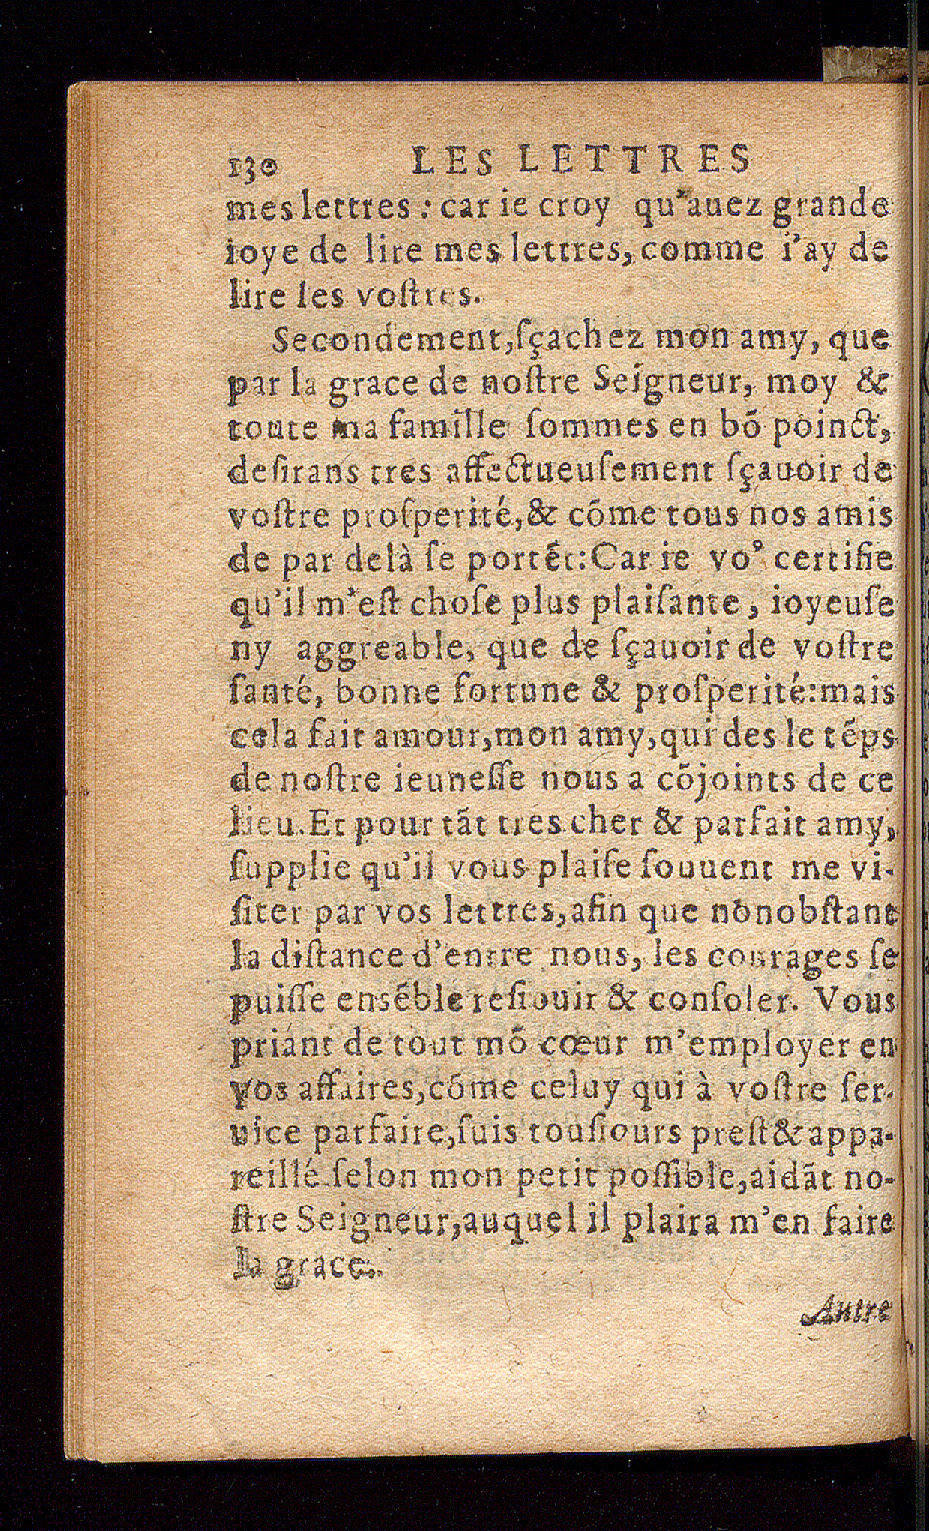 130 LES LETTRES
mes lettres : car ie croy qu'auez grande
ioye de lire mes lettres, comme i'ay de
lire les voſtres.
Secondement, ſçachez mon amy, que
par la grace de noſtre Seigneur, moy &
toute ma famille ſommes en bõ poinct,
deſirans tres affectueuſement ſçauoir de
voſtre proſperité, & cõme tous nos amis
de par delà ſe portẽt: Car ie vo⁹ certifie
qu'il m'eſt choſe plus plaiſante, ioyeuſe
ny aggreable, que de ſçauoir de voſtre
ſanté, bonne fortune & proſperité: mais
cela fait amour, mon amy, qui des le tẽps
de noſtre ieuneſſe nous a cõjoints de ce
lieu. Et pour tãt tres cher & parfait amy,
ſupplie qu'il vous plaiſe ſouuent me vi-
ſiter par vos lettres, afin que nonobſtant
la diſtance d'entre nous, les courages ſe
puiſſe enſẽble reſiouir & conſoler. Vous
priant de tout mõ cœur m'employer en
vos affaires, cõme celuy qui à voſtre ſer-
uice parfaire, ſuis touſiours preſt & appa-
reillé ſelon mon petit poſſible, aidãt no-
ſtre Seigneur, auquel il plaira m'en faire
la grace.
Autre